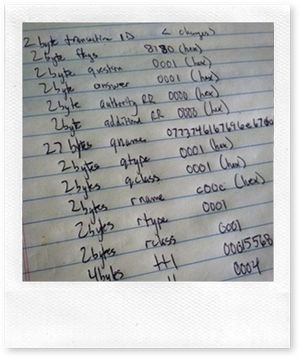 2 byte transaction ID < changes
2 byte flags 8180 (hex)
2 byte question 0001 (hex)
2 byte answer 0001 (hex)
2 byte authority RR 0000 (hex)
2 byte additional RR 0000 (hex)
27 bytes qname
2 bytes qtype 0001 (hex)
2 bytes qclass 0001 (hex)
2 bytes rname c00c (hex)
2 bytes rtype 0001
2 bytes rclass 0001
4 bytes ttl 00015568
0004